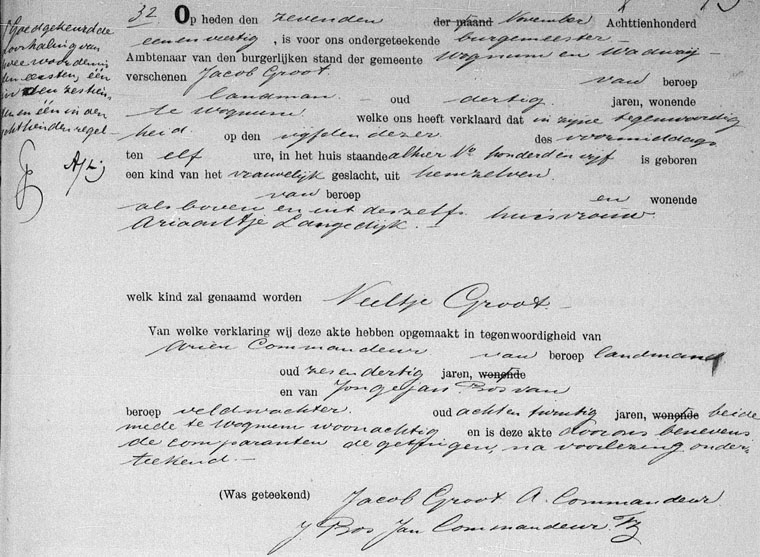 32. Op heden den zevenden der maand November Achttienhonderd
een en veertig, is voor ons ondergeteekende burgemeester
Ambtenaar van den burgerlijken stand der gemeente Wognum en Wadway
verschenen Jacob Groot van beroep
landman oud dertig jaren, wonende
te Wognum welke ons heeft verklaard dat in zijne tegenwoordig
heid op den vijfden dezer des voormiddags
ten elf ure, in het huis staande alhier No honderd en vijf is geboren
een kind van het vrouwelijk geslacht, uit hemzelven
van beroep en wonende
als boven en uit deszelfs huisvrouw
Ariaantje Langedijk.
welk kind zal genaamd worden Neeltje Groot
Van welke verklaring wij deze akte hebben opgemaakt in tegenwoordigheid van
Ariën Commandeur van beroep landman
oud zes en dertig jaren, wonende
en van Jonge Jan Bos van
beroep veldwachter oud acht en twintig jaren, wonende beide
mede te Wognum woonachtig en is deze akte door ons benevens
de comparanten de getuigen, na voorlezing onder-
teekend.
(Was geteekend) Jacob Groot A. Commandeur
J Bos Jan Commandeur
Goedgekeurd de
doorhaling van
twee woorden in
den eersten, één
in den zestien
den en één in den
achttienden regel